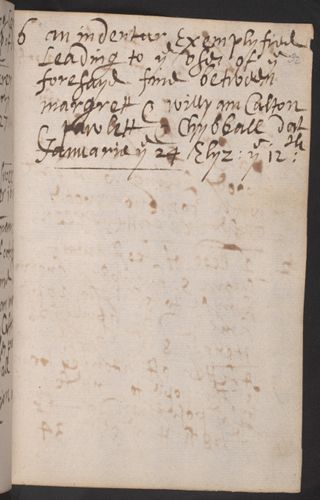 6 an indentur Exemplyfied
Leading to yͤ vses of yͤ
foresayd fine between
margrett & willyam Calton
pawlett & Chybball dat
Januarie yͤ 24 Elyz: yͤ 12th: